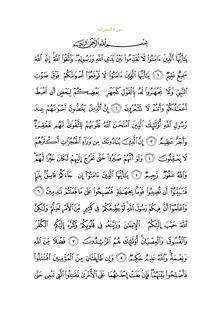 سورة الحجرات
بِسْمِ ٱللَّهِ ٱلرَّحْمَـٰنِ ٱلرَّحِيمِ
يَـٰٓأَيُّهَا ٱلَّذِينَ ءَامَنُوا۟ لَا تُقَدِّمُوا۟ بَيْنَ يَدَىِ ٱللَّهِ وَرَسُولِهِۦ وَٱتَّقُوا۟ ٱللَّهَ إِنَّ ٱللَّهَ
سَمِيعٌ عَلِيمٌ ١ يَـٰٓأَيُّهَا ٱلَّذِينَ ءَامَنُوا۟ لَا تَرْفَعُوٓا۟ أَصْوَٰتَكُمْ فَوْقَ صَوْتِ
ٱلنَّبِىِّ وَلَا تَجْهَرُوا۟ لَهُۥ بِٱلْقَوْلِ كَجَهْرِ بَعْضِكُمْ لِبَعْضٍ أَن تَحْبَطَ
أَعْمَـٰلُكُمْ وَأَنتُمْ لَا تَشْعُرُونَ ٢ إِنَّ ٱلَّذِينَ يَغُضُّونَ أَصْوَٰتَهُمْ عِندَ
رَسُولِ ٱللَّهِ أُو۟لَـٰٓئِكَ ٱلَّذِينَ ٱمْتَحَنَ ٱللَّهُ قُلُوبَهُمْ لِلتَّقْوَىٰ لَهُم مَّغْفِرَةٌ
وَأَجْرٌ عَظِيمٌ ٣ إِنَّ ٱلَّذِينَ يُنَادُونَكَ مِن وَرَآءِ ٱلْحُجُرَٰتِ أَكْثَرُهُمْ
لَا يَعْقِلُونَ ٤ وَلَوْ أَنَّهُمْ صَبَرُوا۟ حَتَّىٰ تَخْرُجَ إِلَيْهِمْ لَكَانَ خَيْرًا لَّهُمْ
وَٱللَّهُ غَفُورٌ رَّحِيمٌ ٥ يَـٰٓأَيُّهَا ٱلَّذِينَ ءَامَنُوٓا۟ إِن جَآءَكُمْ فَاسِقٌۢ بِنَبَإٍ
فَتَبَيَّنُوٓا۟ أَن تُصِيبُوا۟ قَوْمًۢا بِجَهَـٰلَةٍ فَتُصْبِحُوا۟ عَلَىٰ مَا فَعَلْتُمْ نَـٰدِمِينَ ٦
وَٱعْلَمُوٓا۟ أَنَّ فِيكُمْ رَسُولَ ٱللَّهِ لَوْ يُطِيعُكُمْ فِى كَثِيرٍ مِّنَ ٱلْأَمْرِ لَعَنِتُّمْ وَلَـٰكِنَّ
ٱللَّهَ حَبَّبَ إِلَيْكُمُ ٱلْإِيمَـٰنَ وَزَيَّنَهُۥ فِى قُلُوبِكُمْ وَكَرَّهَ إِلَيْكُمُ ٱلْكُفْرَ
وَٱلْفُسُوقَ وَٱلْعِصْيَانَ أُو۟لَـٰٓئِكَ هُمُ ٱلرَّٰشِدُونَ ٧ فَضْلًا مِّنَ ٱللَّهِ
وَنِعْمَةً وَٱللَّهُ عَلِيمٌ حَكِيمٌ ٨ وَإِن طَآئِفَتَانِ مِنَ ٱلْمُؤْمِنِينَ ٱقْتَتَلُوا۟
فَأَصْلِحُوا۟ بَيْنَهُمَا فَإِنۢ بَغَتْ إِحْدَىٰهُمَا عَلَى ٱلْأُخْرَىٰ فَقَـٰتِلُوا۟ ٱلَّتِى تَبْغِى حَتَّىٰ